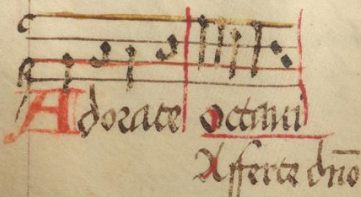 Adorate octaui
Afferte dn̄o